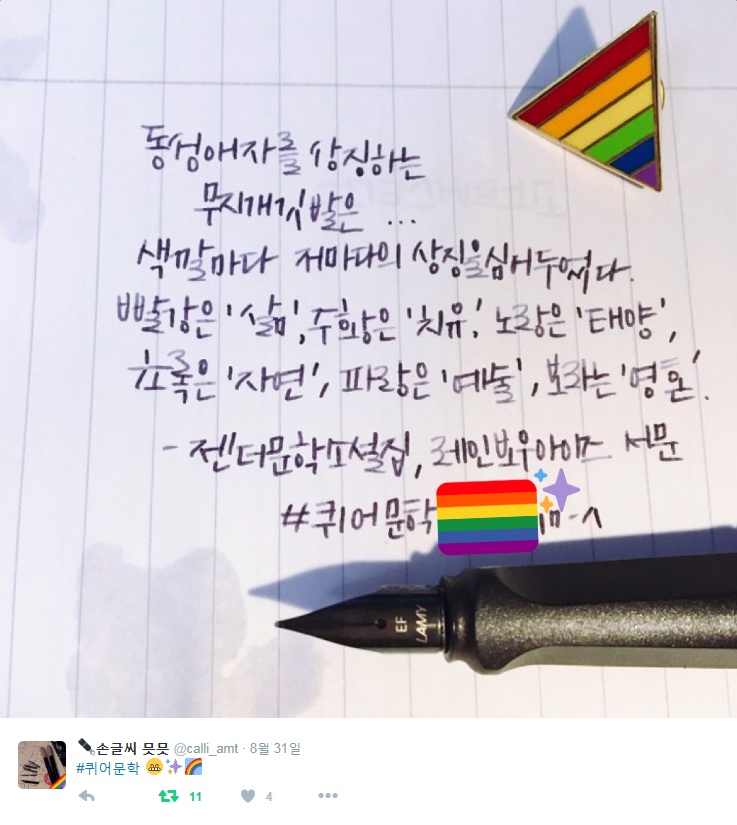 동성애자를 상징하는
무지개깃발은 ...
색깔마다 저마다의 상징을 심어두었다.
빨강은 '삶', 주황은 '치유', 노랑은 '태양',
초록은 '자연', 파랑은 '예술', 보라는 '영혼'.
- 젠더문학소설집, 레인보우아이즈 서문
#퀴어문학
EF
LAMY
손글씨 믓믓 @calli_amt · 8월 31일
#퀴어문학
11 4